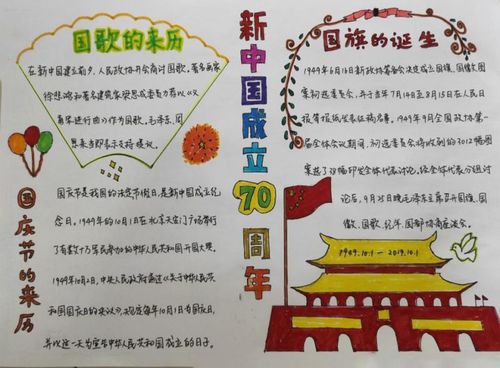 国歌的来历
在新中国建立前夕，人民政协开会商讨国歌，著名画家
徐悲鸿和著名建筑家梁思成委员力荐以《义
勇军进行曲》作为国歌，毛泽东、周
恩来当即表示支持提议。
国庆节的来历
国庆节是我国的法定节假日，是新中国成立纪
念日。1949年的10月1日在北京天安门广场举行
了有数十万军民参加的中华人民共和国开国大典。
1949年10月2日，中央人民政府通过《关于中华人民共
和国国庆日的决议》，规定每年10月1日为国庆日，
并以这一天为宣告中华人民共和国成立的日子。
新中国成立70周年
国旗的诞生
1949年6月16日新政协筹备会决定成立国旗、国徽图
案初选委员会，并于当年7月14日至8月15日在人民日
报等报纸发表征稿启事。1949年9月全国政协第一
届全体会议期间，初选委员会将收到的3012幅图
案选了38幅印发全体代表讨论。经全体代表分组讨
论后，9月25日晚毛泽东主席召开国旗、国
徽、国歌、纪年、国都协商座谈会。
1949.10.1 — 2019.10.1